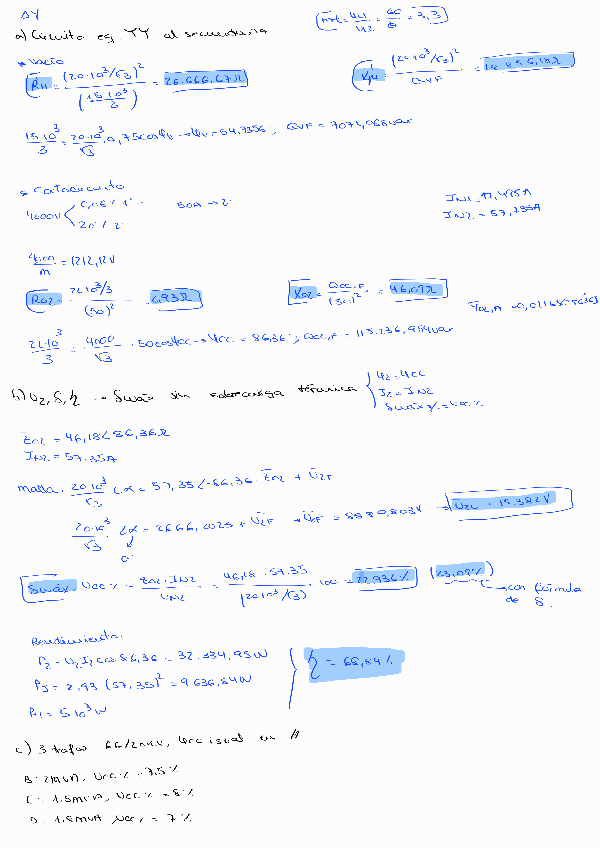 ΔY
a) Circuito eq YY al secundario
mt = U1/U2 = 66/20 = 3,3
* Vacío
= (20·10³/√3)² / (15·10³/3) = 26.666,67Ω
= (20·10³/√3)² / QVF = 18.856,18Ω
15·10³/3 = 20·10³/√3 · 0,75cosφv → φv = 54,7356; QVF = 7071,068var
* Cortocircuito
4000V
50A → 2
IN1 = 17,495A
IN2 = 57,735A
4000/m = 1212,12V
R02 = 22·10³/3 / (50)² = 2,93Ω
X02 = Qcc,F / (50)² = 46,09Ω
22·10³/3 = 4000/√3 · 50cosφcc → φcc = 86,36°; Qcc,F = 115.236,914var
b) U2, δ, η → δmáx sin sobrecarga térmica
φ2 = φcc
I2 = IN2
δmáx% = Ucc%
Z02 = 46,18<86,36Ω
IN2 = 57.35A
malla. 20·10³/√3 <α = 57,35<-86,36 · Z02 + U2F
20·10³/√3 <α = 2666,2025 + U2F → U2F = 8880,803V → U2L = 15.382V
δmáx. Ucc% = Z02·IN2/UN2 = 46,18·57.35/(20·10³/√3) · 100 = 22,936% (23,09%)
→ con fórmula
de δ.
Rendimiento.
P2 = U2I2cos86,36 = 32.334,95W
PJ = 2,93 (57,35)² = 9636,84W
η = 66,84%
PH = 5·10³W
c) 3 trafos 66/20kV, φcc igual en A
B: 2MVA, Ucc% = 7.5%
C: 1.5MVA, Ucc% = 8%
D: 1.8MVA, Ucc% = 7%